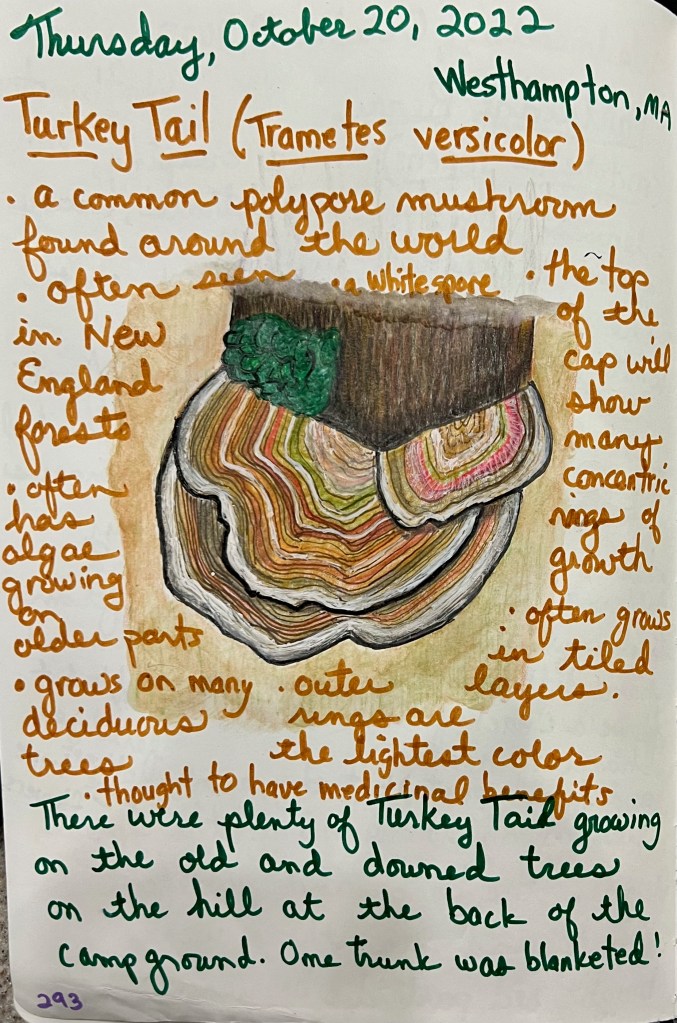 Thursday, October 20, 2022
Westhampton, MA
Turkey Tail (Trametes versicolor)
• a common polypore mushroom
found around the world
• often seen
in New
England
forests
• often
has
algae
growing
on
older parts
• grows on many
deciduous
trees
• a white spore
• the top
of the
cap will
show
many
concentric
rings of
growth
• often grows
in tiled
layers.
• outer
rings are
the lightest color
• thought to have medicinal benefits
There were plenty of Turkey Tail growing
on the old and downed trees
on the hill at the back of the
campground. One trunk was blanketed!
293